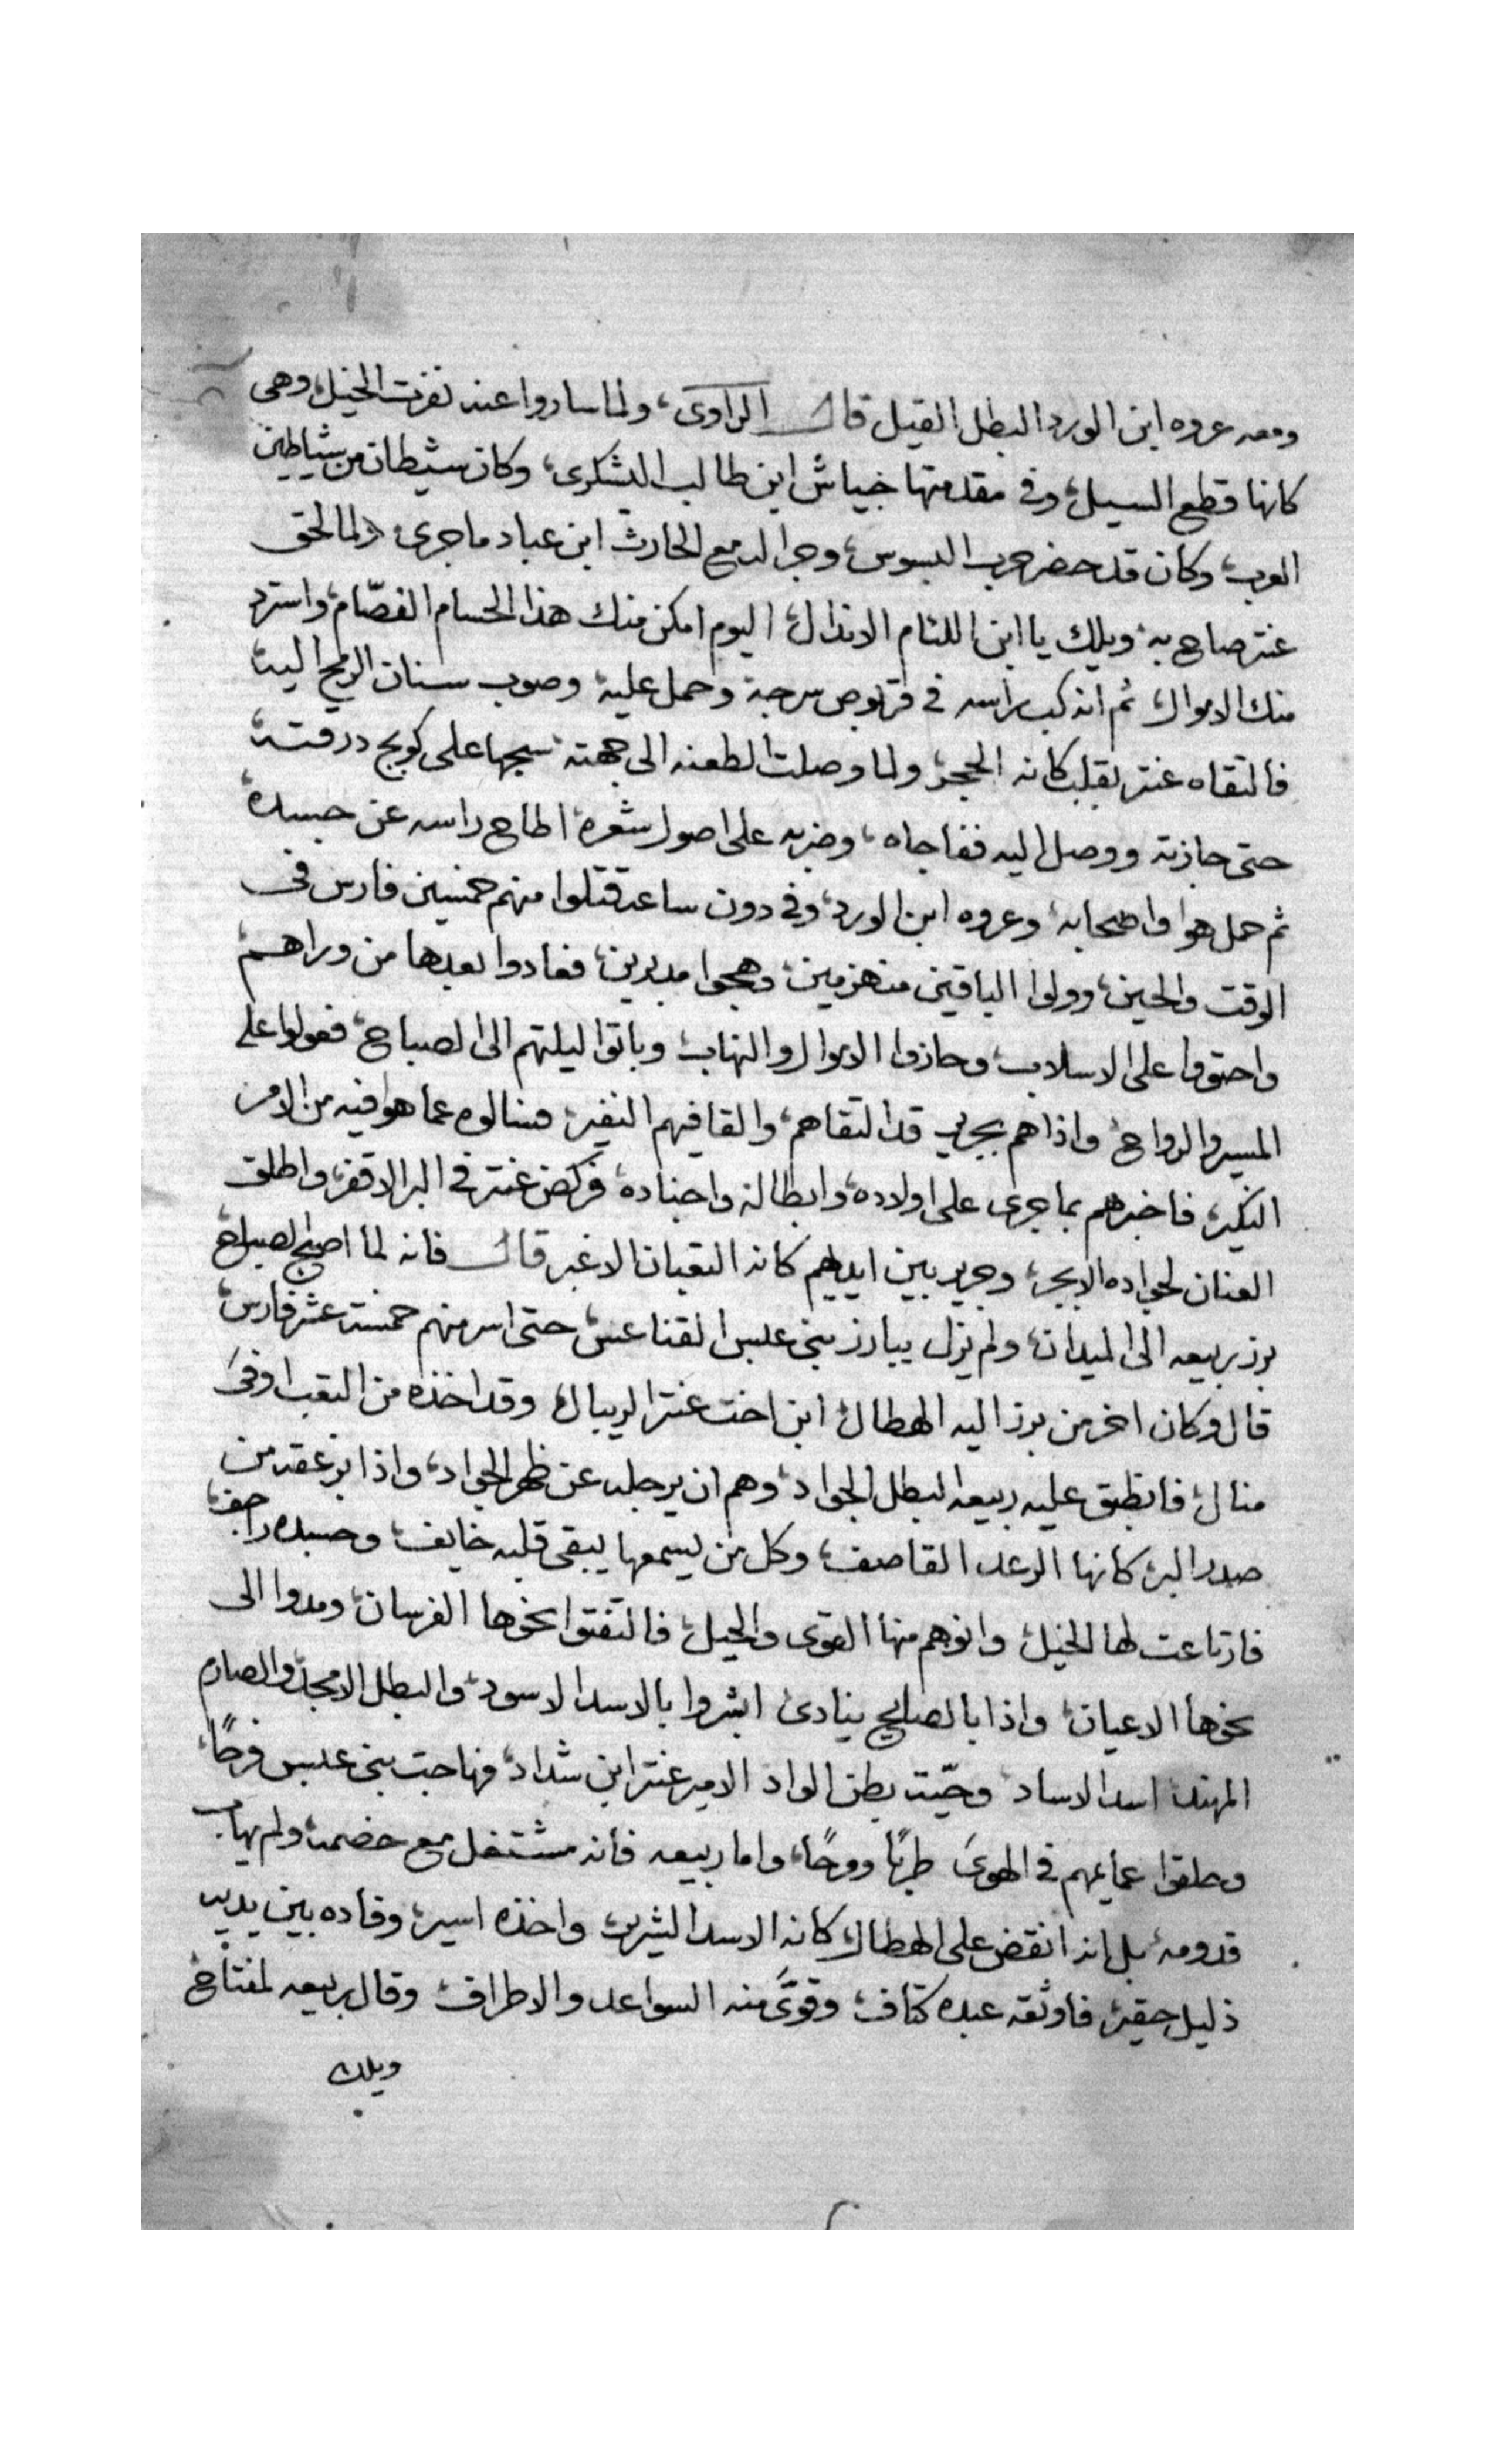 ومعه عروه ابن الورد البطل القيل قال الراوى، ولما ساروا عند نفرت الخيل، وهى
كانها قطع السيل، وفى مقدمتها خياش ابن طالب اليشكرى، وكان شيطان من شياطين
العرب، وكان قد حضر حرب البسوس، وجرا له مع الحارث ابن عباد ما جرى، ولما لحق
عنتر صاح به، ويلك يا ابن اللئام الانذال، اليوم امكن منك هذا الحسام الفصّام، واسترد
منك الاموال، ثم انه كب راسه فى قربوص سرجه، وحمل عليه، وصوب سنان الرمح اليه،
فالتقاه عنتر بقلب كانه الحجر، ولما وصلت الطعنه الى جهته، سيجها على كوبج درقته،
حتى جازته ووصل اليه ففاجاه، وضربه على اصول شعره، اطاح راسه عن جسده،
ثم حمل هوا واصحابه، وعروه ابن الورد، وفى دون ساعه قتلوا منهم خمسين فارس فى
الوقت والحين، وولوا الباقين منهزمين، وهجوا مدبرين، فعادوا بعدها من وراهم،
واحتووا على الاسلاب، وحازوا الاموال والنهاب، وباتوا ليلتهم الى الصباح، فعولوا على
المسير والرواح، واذا هم بجرير قد التقاهم، والقا فيهم النفير، فسالوه عما هوا فيه من الامر
النكير، فاخبرهم بما جرى على اولاده، وابطاله واجناده، فركض عنتر فى البر الاقفر، واطلق
العنان لجواده الابجر، وجرير بين ايديهم كانه الثعبان الاغبر قال فانه لما اصبح الصباح
برز ربيعه الى الميدان، ولم يزل يبارز بنى عبس القناعس، حتى اسر منهم خمسة عشر فارس،
قال وكان اخر من برز اليه الهطال، ابن اخت عنتر الريبال، وقد اخذه من التعب اوفى
منال، فانطبق عليه ربيعه البطل الجواد، وهم ان يرجله عن ظهر الجواد، واذا بزعقه من
صدر البر، كانها الرعد القاصف، وكل من يسمعها يبقى قلبه خايف، وجسده راجف،
فارتاعت لها الخيل، وانوهم منها القوى والحيل، فالتفتوا نحوها الفرسان، ومدوا الى
نحوها الاعيان، واذا بالصايح ينادى، ابشروا بالاسد الاسود، والبطل الامجد، والصارم
المهند، اسد الاساد، وحيّت بطن الواد، الامير عنتر ابن شداد، فهاجت بنى عبس فرحًا،
وحلقوا عمايمهم فى الهوى طربًا ومرحًا، واما ربيعه فانه مشتغل مع خصمه، ولم يهاب
قدومه، بل انه انقض على الهطال كانه الاسد الشرير، واخذه اسير، وقاده بين يديه
ذليل حقير، فاوثقه عبده كتاف، وقوّى منه السواعد والاطراف، وقال ربيعه لمفتاح
ويلك